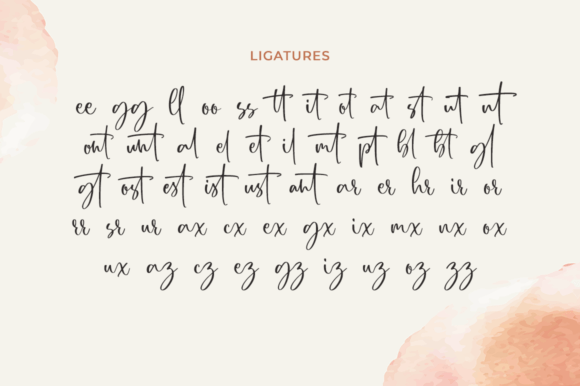 LIGATURES
ee gg ll oo ss tt it ot at st ut nt
ont unt al el et il mt pt bl bt gl
gt ost est ist ust ant ar er hr ir or
rr sr ur ax cx ex gx ix mx nx ox
ux az cz ez gz iz uz oz zz